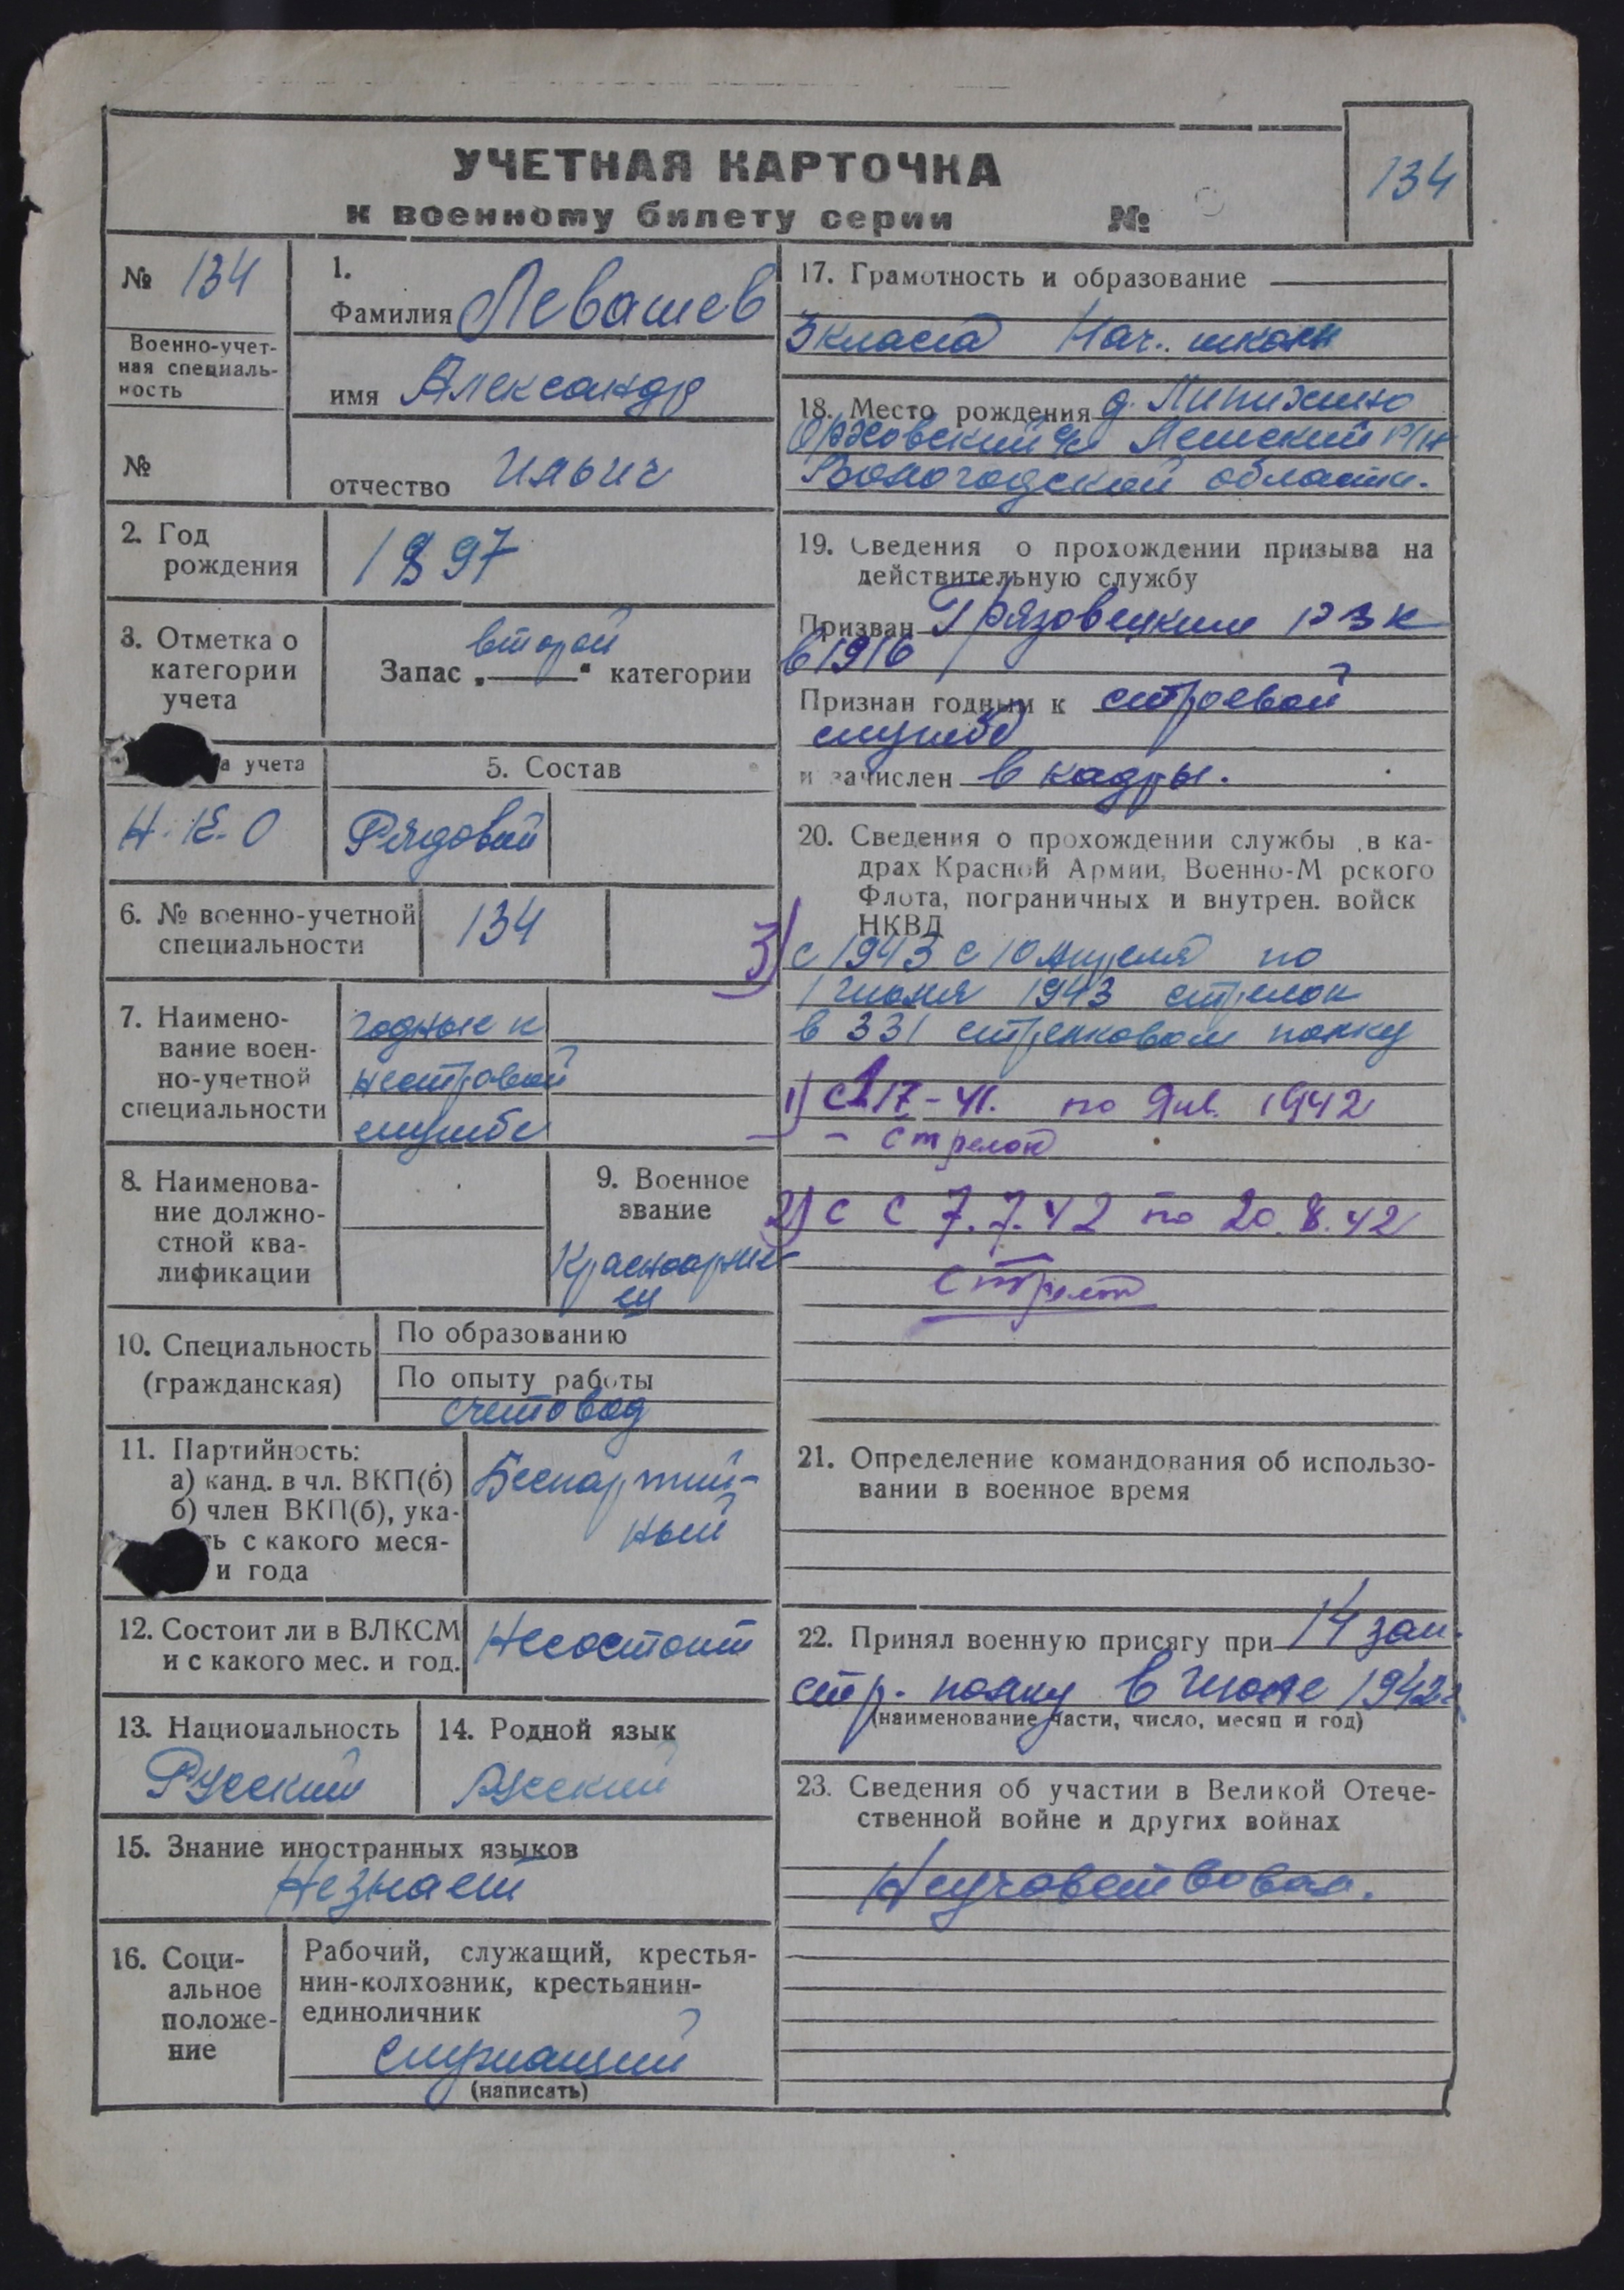 УЧЕТНАЯ КАРТОЧКА
к военному билету серии №
134
№ 134
Военно-учет-
ная специаль-
ность
№
1.
Фамилия Левашев
имя Александр
отчество Ильич
2. Год
рождения
1897
3. Отметка о
категории
учета
второй
Запас „ “ категории
а учета
5. Состав
Рядовой
6. № военно-учетной
специальности
134
7. Наимено-
вание воен-
но-учетной
специальности
годные к
нестроевой
службе
8. Наименова-
ние должно-
стной ква-
лификации
9. Военное
звание
Красноарме
ец
10. Специальность
(гражданская)
По образованию
По опыту работы
счетовод
11. Партийность:
а) канд. в чл. ВКП(б)
б) член ВКП(б), ука-
ь с какого меся-
и года
Беспартий-
ный
12. Состоит ли в ВЛКСМ
и с какого мес. и год.
Несостоит
13. Национальность
Русский
14. Родной язык
Русский
15. Знание иностранных языков
Незнает
16. Соци-
альное
положе-
ние
Рабочий, служащий, крестья-
нин-колхозник, крестьянин-
единоличник
служащий
(написать)
17. Грамотность и образование
3 класса Нач. школы
18. Место рождения д.
р/н
Вологодской области.
19. Сведения о прохождении призыва на
действительную службу
Призван Грязовецким РВК
в 1916
Признан годным к строевой
службе
и зачислен в кадры.
20. Сведения о прохождении службы в ка-
драх Красной Армии, Военно-М рского
Флота, пограничных и внутрен. войск
НКВД
3) с 1943 с 10 Апреля по
1 июня 1943 стрелок
в 331 стрелковом полку
1) по Янв. 1942
- стрелок
2) с с 7.7.42 по 20.8.42
стрелок
21. Определение командования об использо-
вании в военное время
22. Принял военную присягу при 14 зап.
стр. полку в Июле 1942г
(наименование части, число, месяц и год)
23. Сведения об участии в Великой Отече-
ственной войне и других войнах
Неучавствовал.